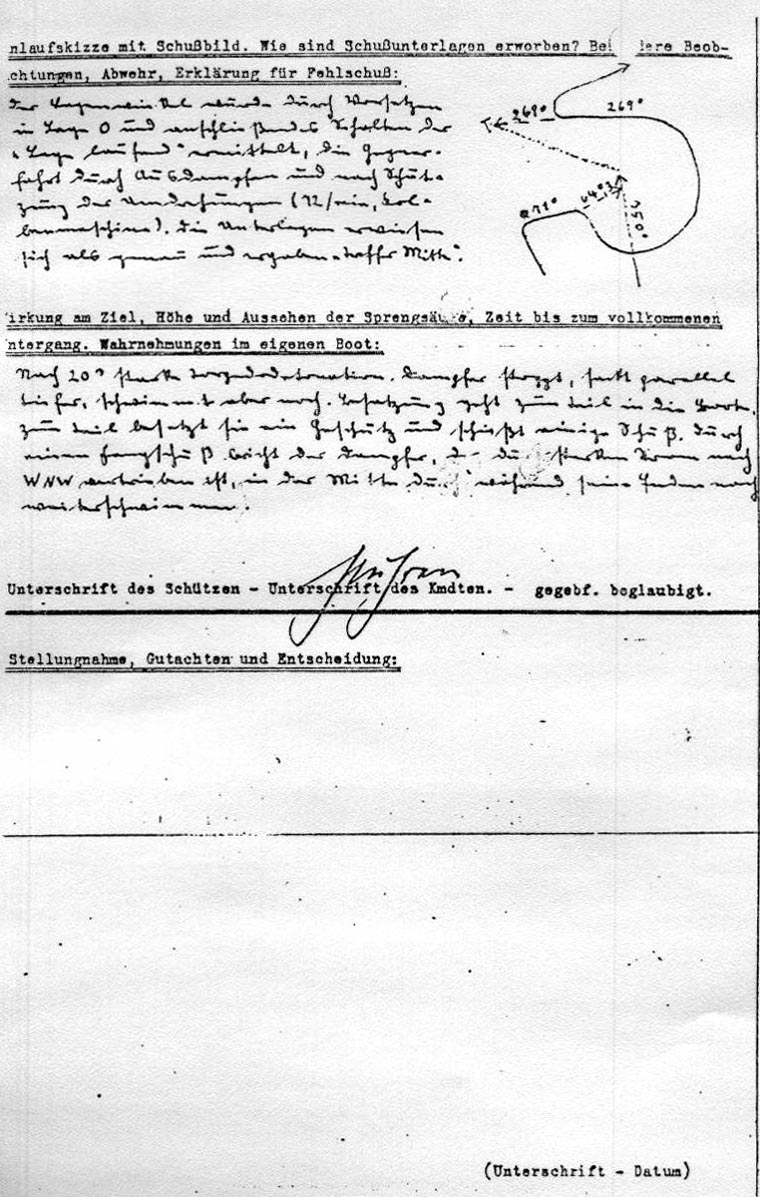 nlaufskizze mit Schußbild. Wie sind Schußunterlagen erworben? Be dere Beob-
chtungen, Abwehr, Erklärung für Fehlschuß:
Der wurde durch Vorsetzen
in Lage 0 und anschließendes Schalten der
"Lage laufend" ermittelt, die Gegner-
fahrt durch Ausdampfen und nach Schät-
zung der Umdrehungen (72/min, Kol-
benmaschine). Die Unterlagen erwiesen
sich als genau und ergaben "Treffer Mitte".
269°
269°
271°
350°
irkung am Ziel, Höhe und Aussehen der Sprengsäule, Zeit bis zum vollkommenen
ntergang. Wahrnehmungen im eigenen Boot:
Nach 20 starke Torpedodetonation. Dampfer stoppt, sackt parallel
tiefer, schwimmt aber noch. Besatzung geht zum Teil in die Boote,
zum Teil besetzt sie ein Geschütz und schießt einige Schuß. Durch
einen Fangschuß bricht der Dampfer, der durch starken Strom nach
WNW vertrieben ist, in der Mitte durch während seine Enden noch
weiterschwimmen.
Unterschrift des Schützen - Unterschrift des Kmdten. - gegebf. beglaubigt.
Stellungnahme, Gutachten und Entscheidung:
(Unterschrift - Datum)